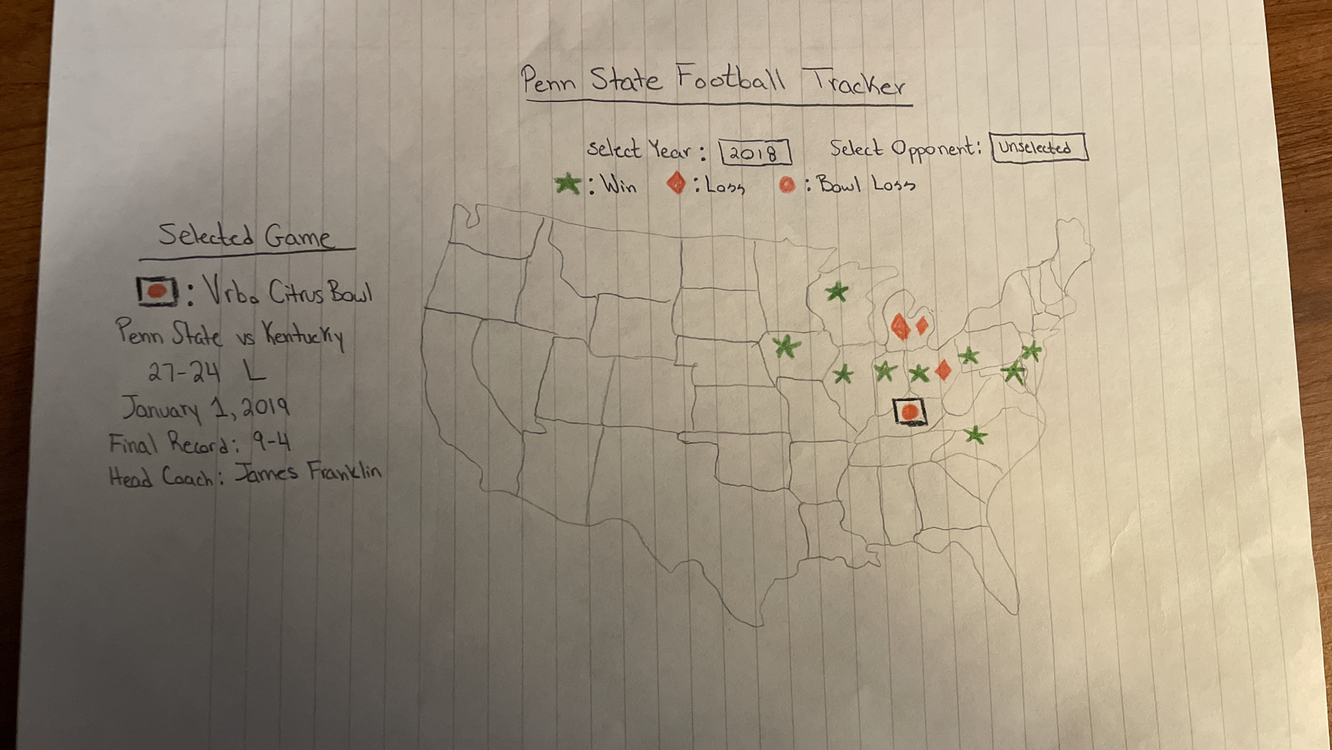 Penn State Football Tracker
Select Year: 2018 Select Opponent: Unselected
: Win : Loss : Bowl Loss
Selected Game
: Vrbo Citrus Bowl
Penn State vs Kentucky
27-24 L
January 1, 2019
Final Record: 9-4
Head Coach: James Franklin